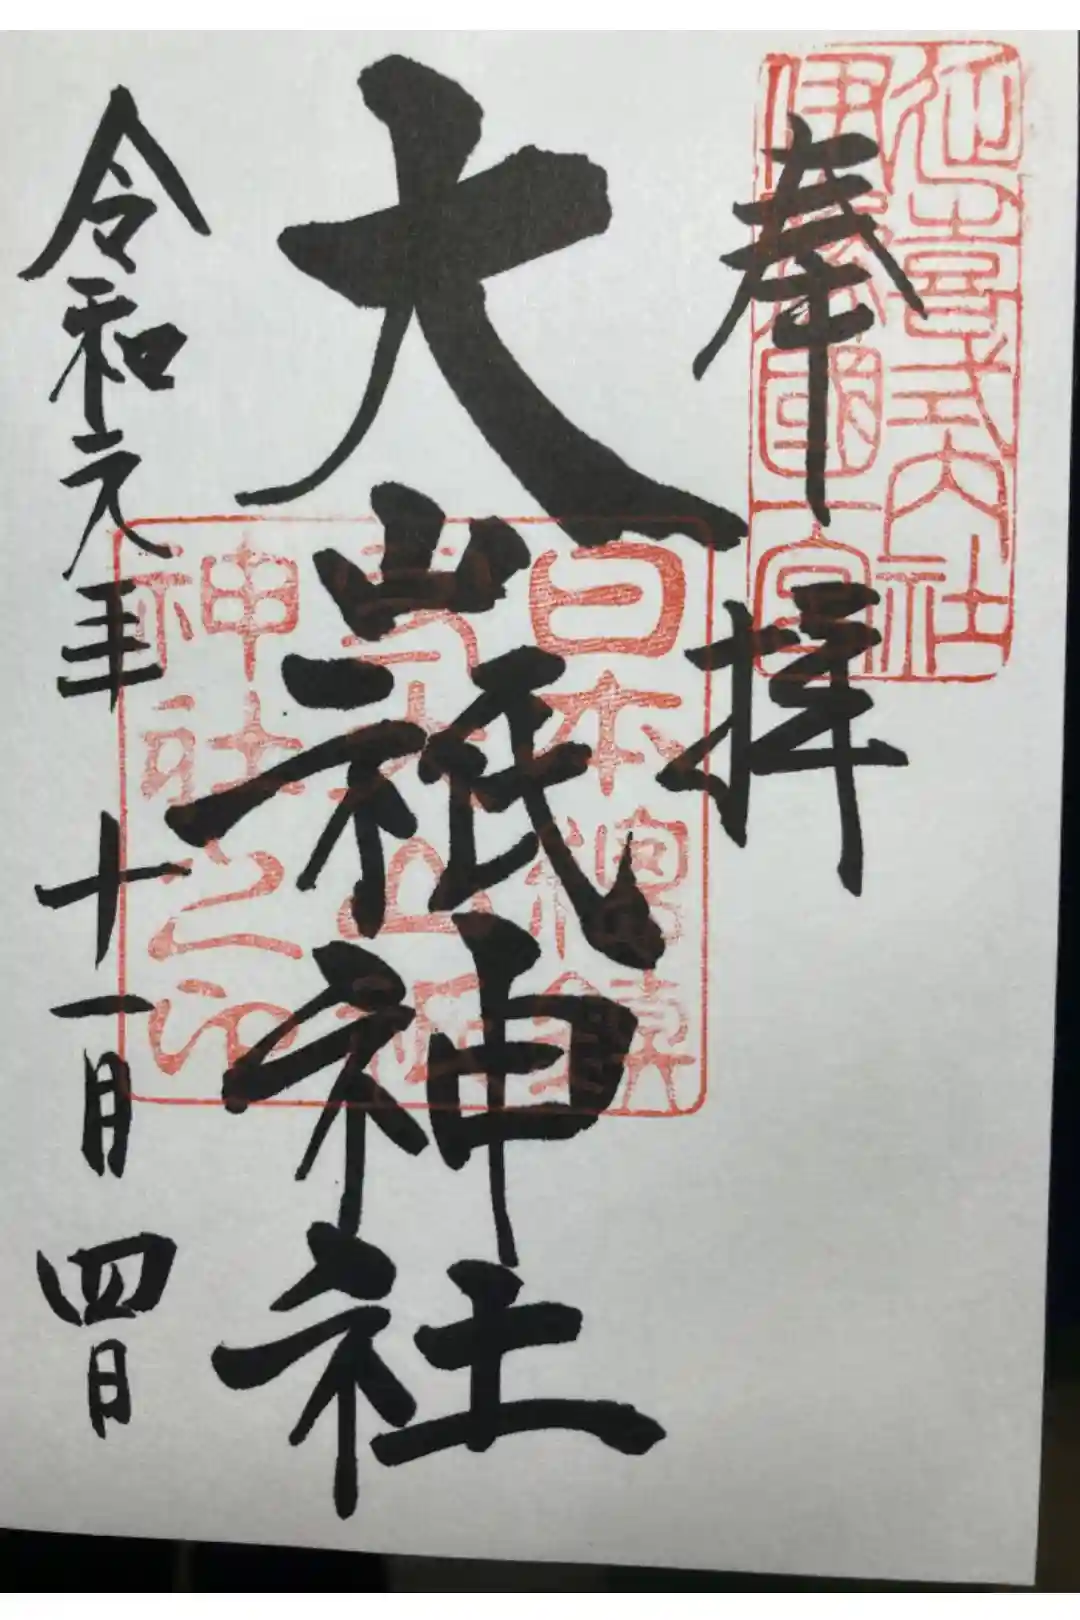 延喜式内社
伊豫國一宮
奉拝
大山祇神社
日本總鎮
守大山祇
神社之印
令和元年十一月四日